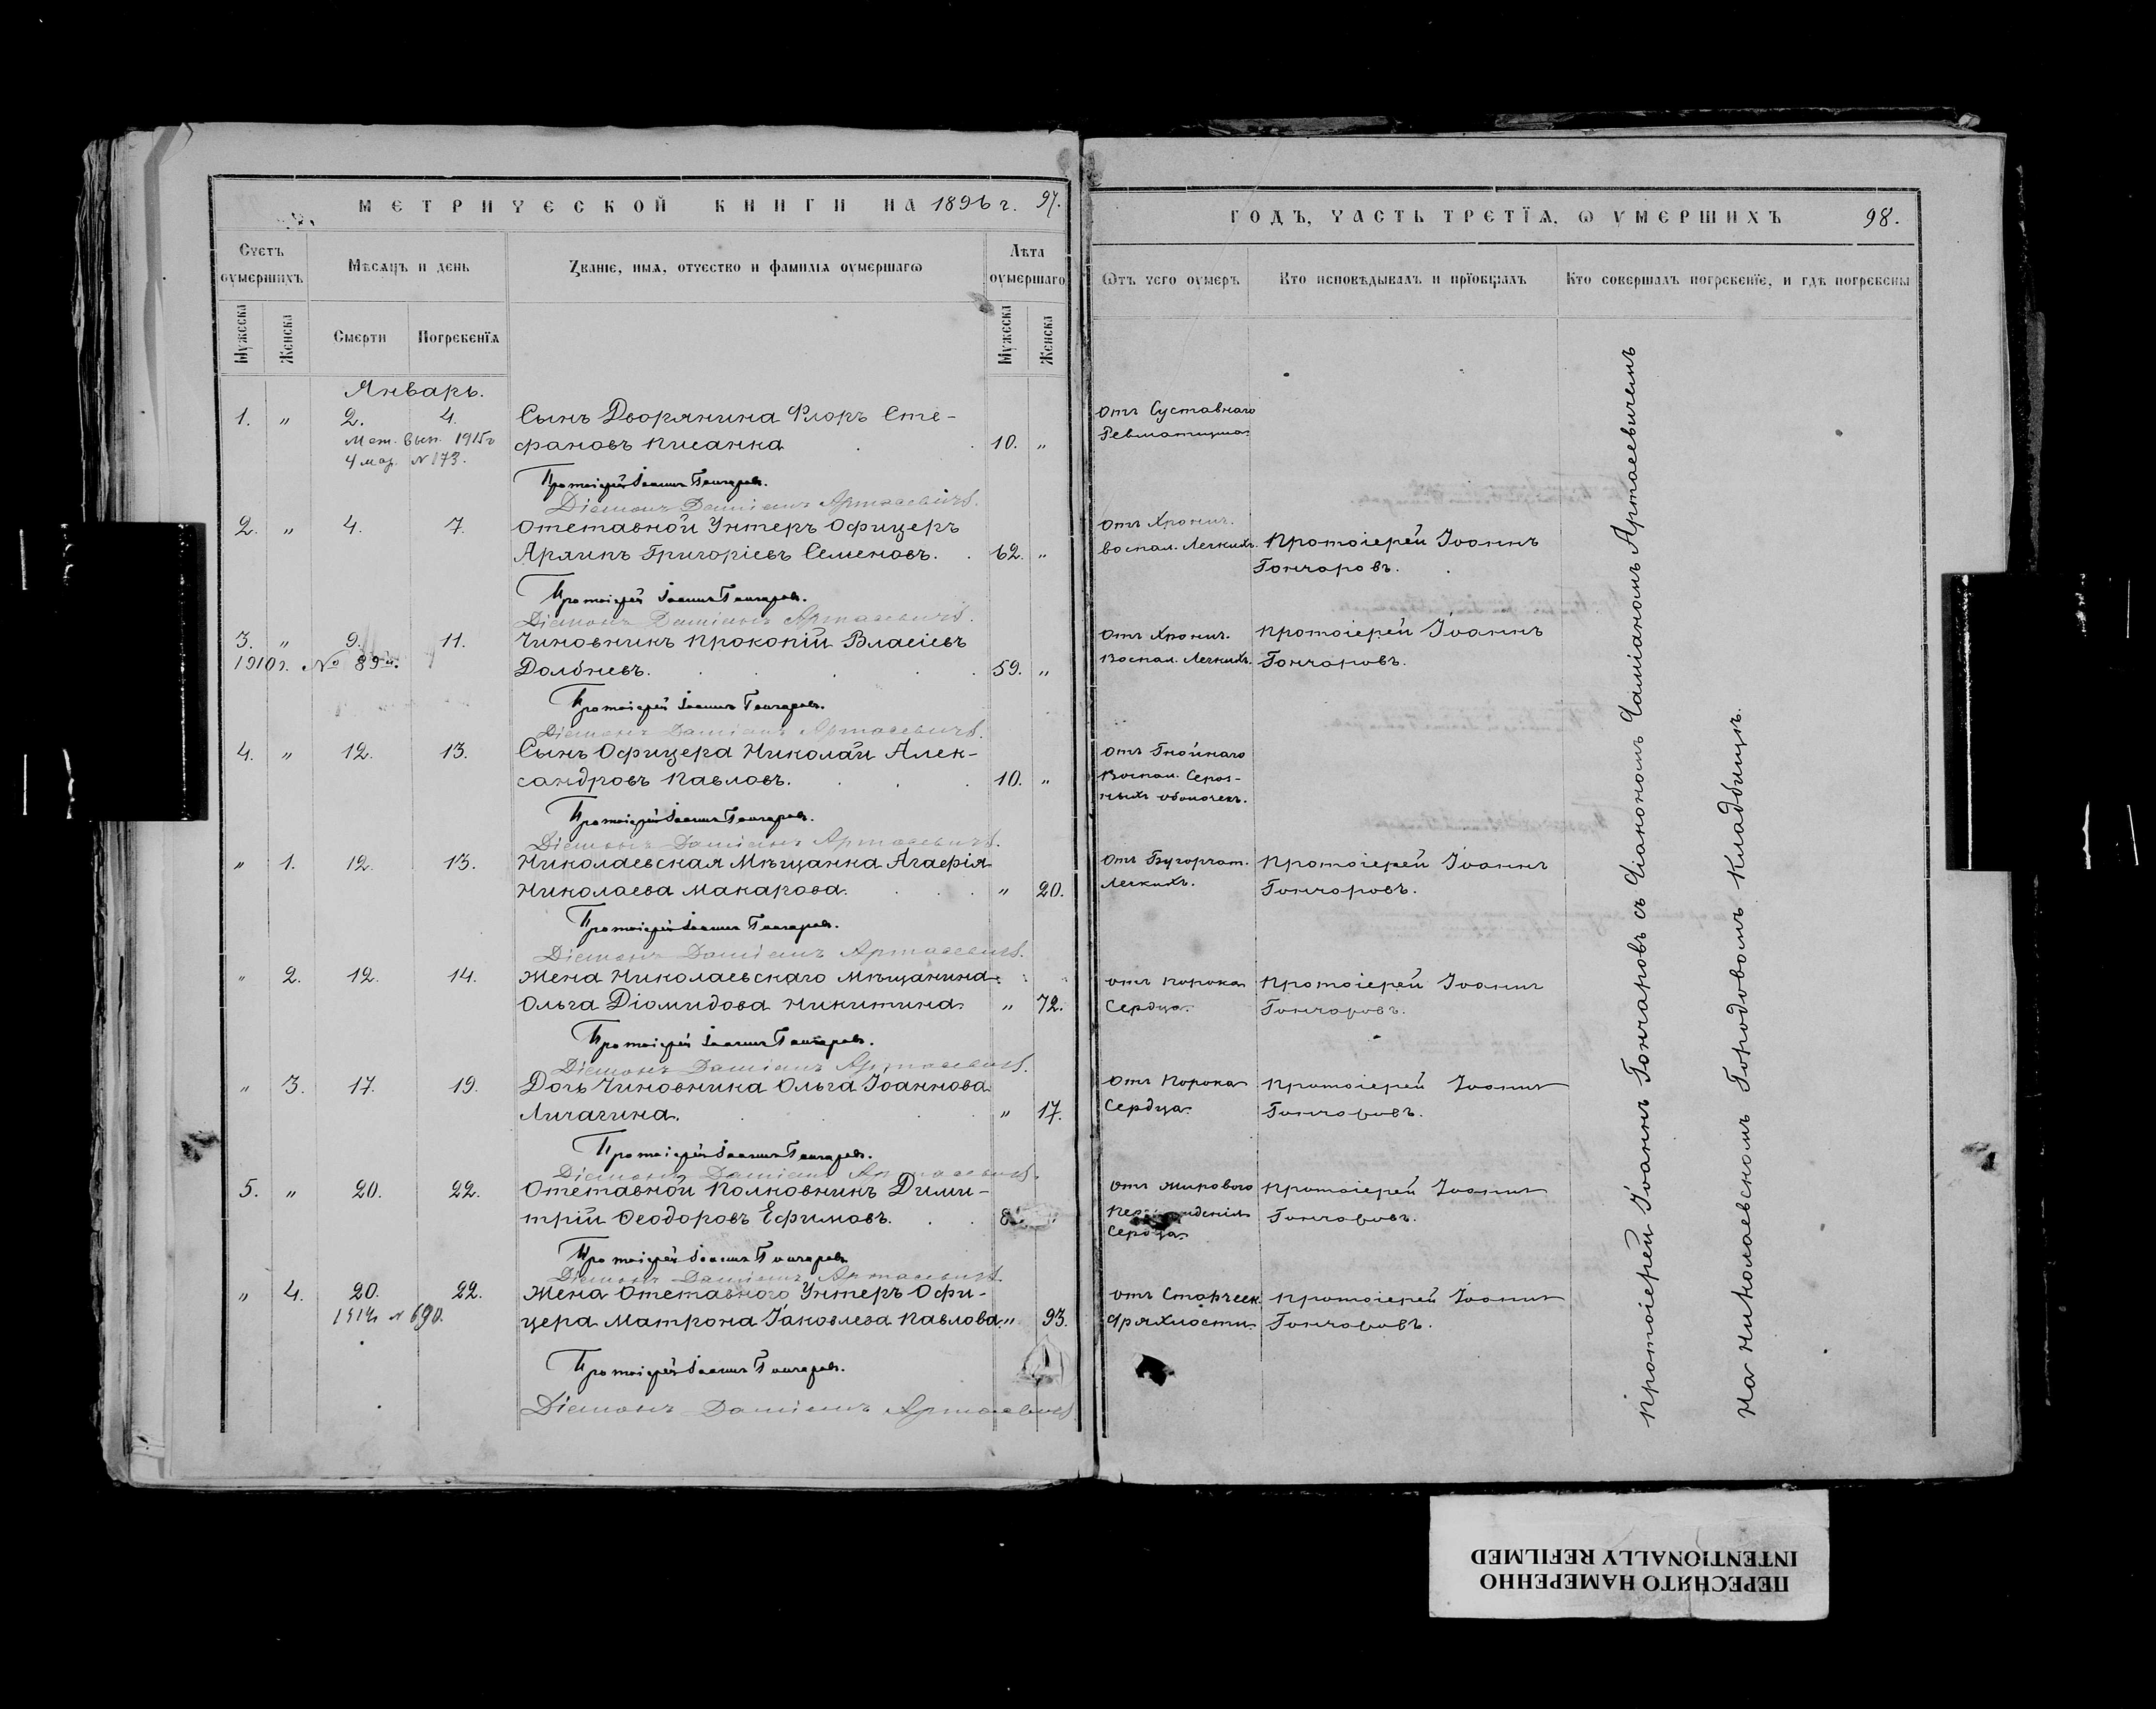 МЕТРИЧЕСКОЙ КНИГИ НА 1896 г. 97.
Счетъ умершихъ
Мѣсяцъ и день
Званіе, имя, отчество и фамилія умершаго
Лѣта умершаго
Мужеска
Женска
Смерти
Погребенія
Мужеска
Женска
Январь.
1. " 2. 4. Сынъ Дворянина Флоръ Сте-
Мет. вып. 1915 г
фановъ Писанка 10. "
4 мар. N 173.
Протоіерей Іоаннъ Гончаровъ.
Діаконъ Даміанъ Артасевичъ.
2. " 4. 7. Отставной Унтеръ Офицеръ
Григоріевъ Семеновъ. 62. "
Протоіерей Іоаннъ Гончаровъ.
Діаконъ Даміанъ Артасевичъ.
3. " 9. 11. Чиновникъ Прокопій Власіевъ
1910 г. № 89
Долбневъ. 59. "
Протоіерей Іоаннъ Гончаровъ.
Діаконъ Даміанъ Артасевичъ.
4. " 12. 13. Сынъ Офицера Николай Алек-
сандровъ Павловъ. 10. "
Протоіерей Іоаннъ Гончаровъ.
Діаконъ Даміанъ Артасевичъ.
" 1. 12. 13. Николаевская Мѣщанка Агафія
Николаева Макарова. " 20.
Протоіерей Іоаннъ Гончаровъ.
Діаконъ Даміанъ Артасевичъ.
" 2. 12. 14. Жена Николаевскаго Мѣщанина
Ольга Діомидова Никитина " 72.
Протоіерей Іоаннъ Гончаровъ.
Діаконъ Даміанъ Артасевичъ.
" 3. 17. 19. Дочь Чиновника Ольга Іоаннова
Личагина. " 17.
Протоіерей Іоаннъ Гончаровъ.
Діаконъ Даміанъ Артасевичъ.
5. " 20. 22. Отставной Полковникъ Дими-
трій Феодоровъ Ефимовъ.
Протоіерей Іоаннъ Гончаровъ.
Діаконъ Даміанъ Артасевичъ.
" 4. 20. 22. Жена Отставного Унтеръ Офи-
1914 N 690.
цера Матрона Іаковлева Павлова " 93.
Протоіерей Іоаннъ Гончаровъ.
Діаконъ Даміанъ Артасевичъ.
ГОДЪ, ЧАСТЬ ТРЕТІЯ, О УМЕРШИХЪ 98.
Отъ чего умеръ
Кто исповѣдывалъ и пріобщалъ
Кто совершалъ погребеніе, и гдѣ погребены
отъ Суставнаго
Ревматизма.
отъ Хронич.
воспал. Легкихъ. Протоіерей Іоаннъ
Гончаровъ.
отъ Хронич. Протоіерей Іоаннъ
Воспал. Легкихъ. Гончаровъ.
отъ Гнойнаго
Воспал. Сероз-
ныхъ оболочекъ.
отъ Бугорчат. Протоіерей Іоаннъ
Легкихъ. Гончаровъ.
отъ порока Протоіерей Іоаннъ
Сердца. Гончаровъ.
отъ порока Протоіерей Іоаннъ
Сердца. Гончаровъ.
отъ жирового Протоіерей Іоаннъ
Гончаровъ.
Сердца.
отъ Старческ. Протоіерей Іоаннъ
дряхлости. Гончаровъ.
Протоіерей Іоаннъ Гончаровъ съ Діакономъ Даміаномъ Артасевичемъ
На Николаевскомъ Городовомъ Кладбищѣ.
ПЕРЕСНЯТО НАМЕРЕННО
INTENTIONALLY REFILMED